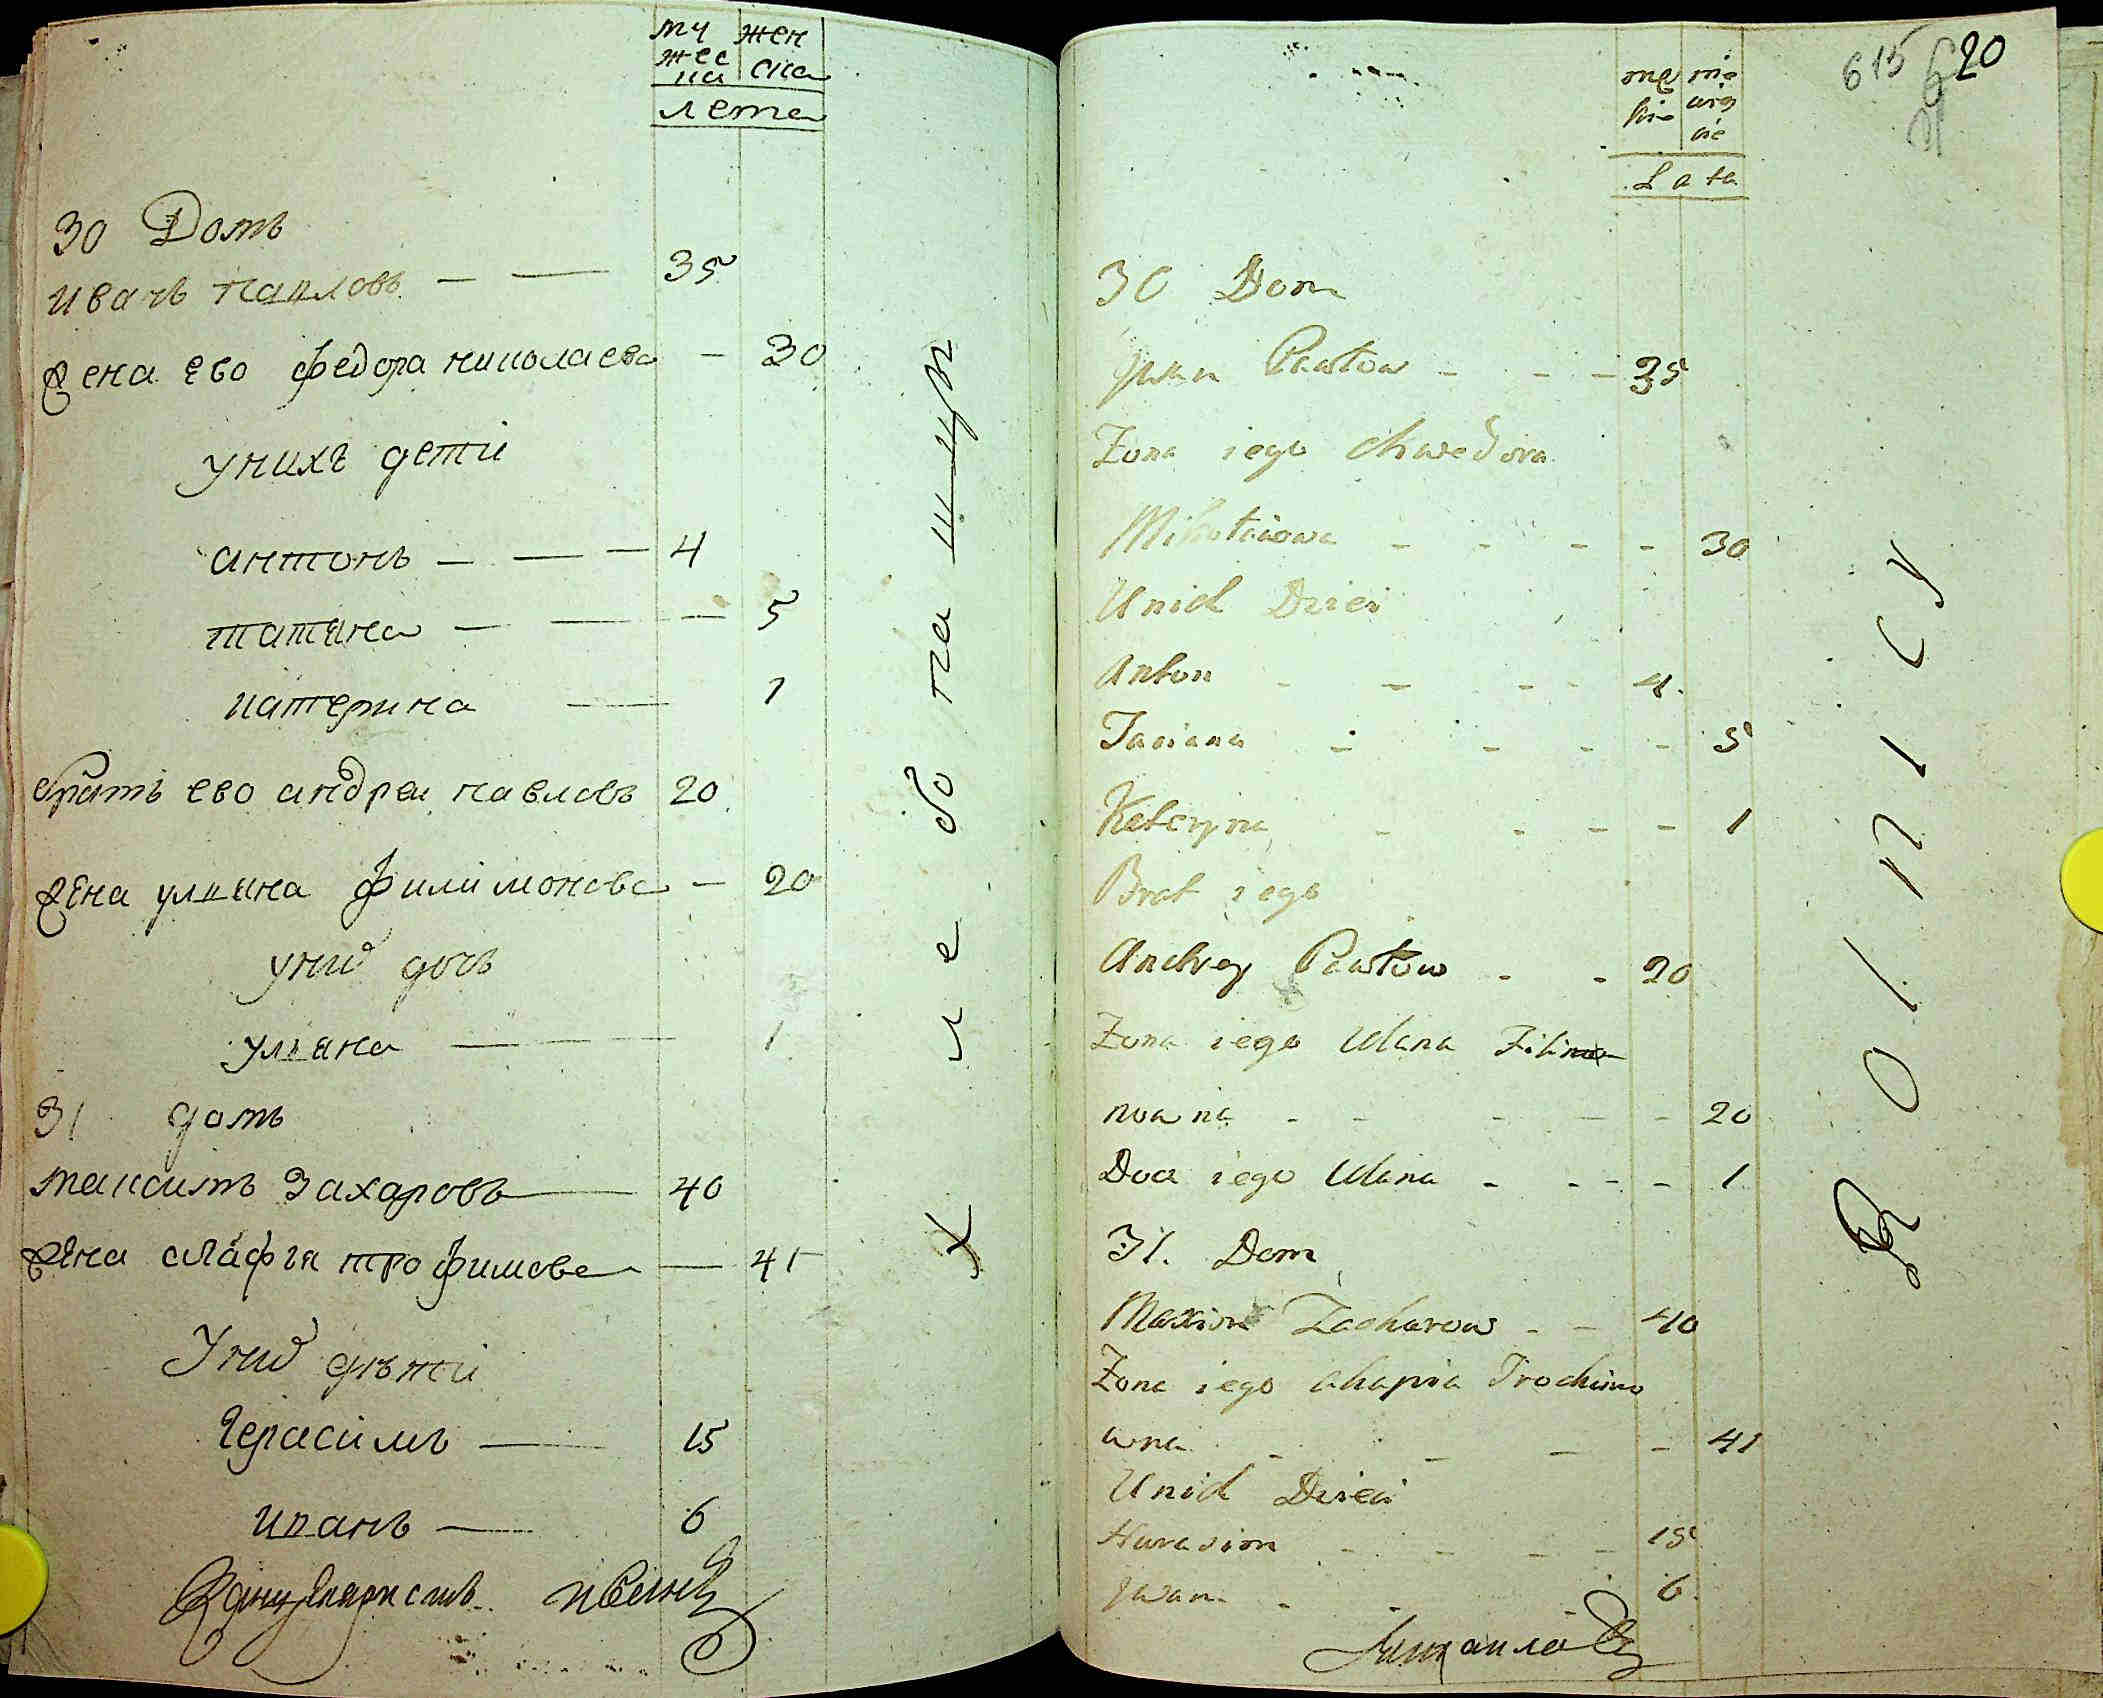 му жен
жес ска
ка
лета
30 Домъ
иванъ павловъ — — 35
жена ево федора николаева — 30
унихъ дети
антонъ — — — 4
татяна — — — 5
катерина — 1
братъ ево андреи павловъ 20
жена уляна филимонова — 20
унид дочь
уляна — 1
31 домъ
максимъ захаровъ — 40
жена агафiя трофимова — 41
Унид дѣти
Герасимъ — 15
иванъ — 6
хлебопашцы
615 620
męskie
Lata
30 Dom
Jwan Pawłow - - - 35
Żona iego Chwedora
Mikołaiowa - - - - 30
Unich Dzieci
Anton - - - - 4.
Taciana - - - - 5
Kateryna - - - - 1
Brat iego
Andrey Pawłow - - 20
Żona iego Ulana Filimo
nowna - - - - 20
Doc iego Ulana - - - - 1
31. Dom
Maxim Zacharow - - 40
Żona iego Ahapia Trochimo
wna - - - - 41
Unich Dzieci
Harasim - - - - 15
Jwan - - - 6.